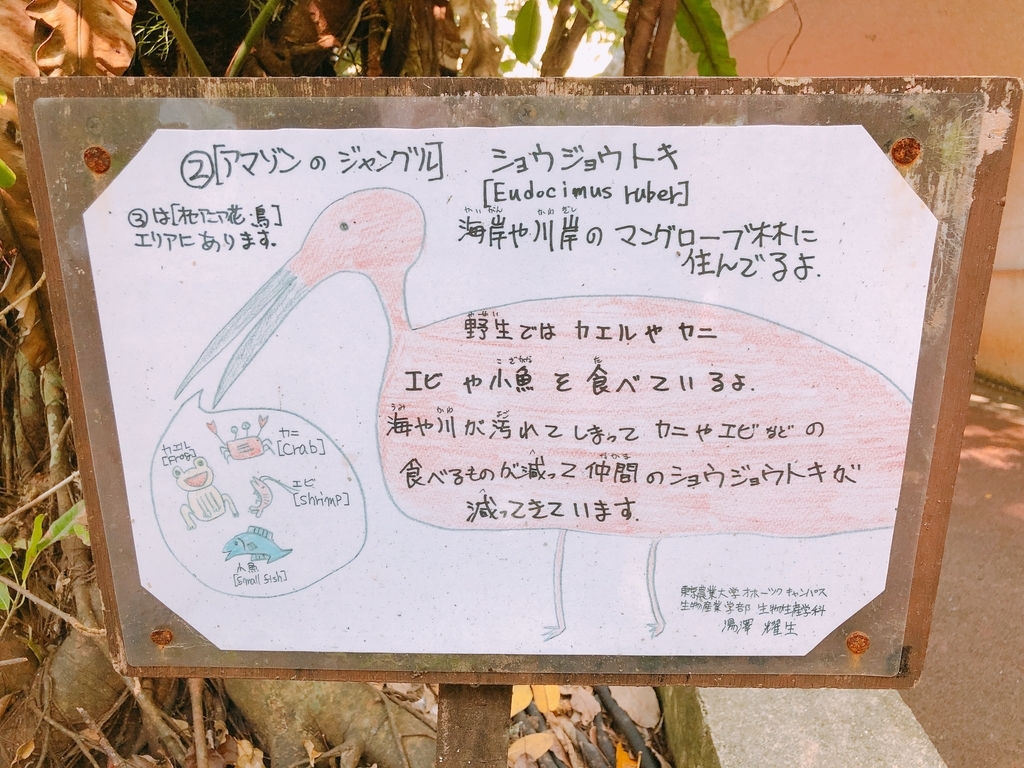 ②[アマゾンのジャングル]
③は[オセアニア花鳥]
エリアにあります.
ショウジョウトキ
[Eudocimus ruber]
かいがん かわぎし
海岸や川岸のマングローブ林に
住んでるよ.
やせい
野生ではカエルやカニ
こざかな た
エビや小魚を食べているよ.
うみ かわ よご
海や川が汚れてしまってカニやエビなどの
へ なかま
食べるものが減って仲間のショウジョウトキが
へ
減ってきています.
カエル
[Frog]
カニ
[Crab]
エビ
[shrimp]
小魚
[Small fish]
東京農業大学オホーツクキャンパス
生物産業学部 生物生産学科
湯澤 耀生